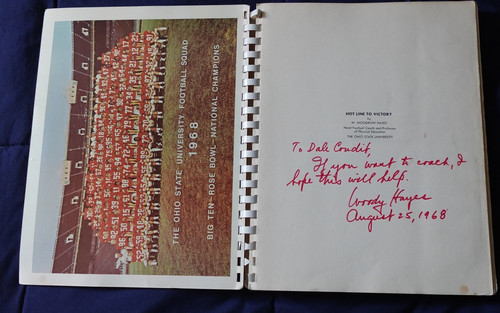 THE OHIO STATE UNIVERSITY FOOTBALL SQUAD
1968
BIG TEN - ROSE BOWL - NATIONAL CHAMPIONS
HOT LINE TO VICTORY
by
W. WOODROW HAYES
Head Football Coach and Professor
of Physical Education
THE OHIO STATE UNIVERSITY
To Dale Condit,
If you want to coach, I
hope this will help.
Woody Hayes
August 25, 1968